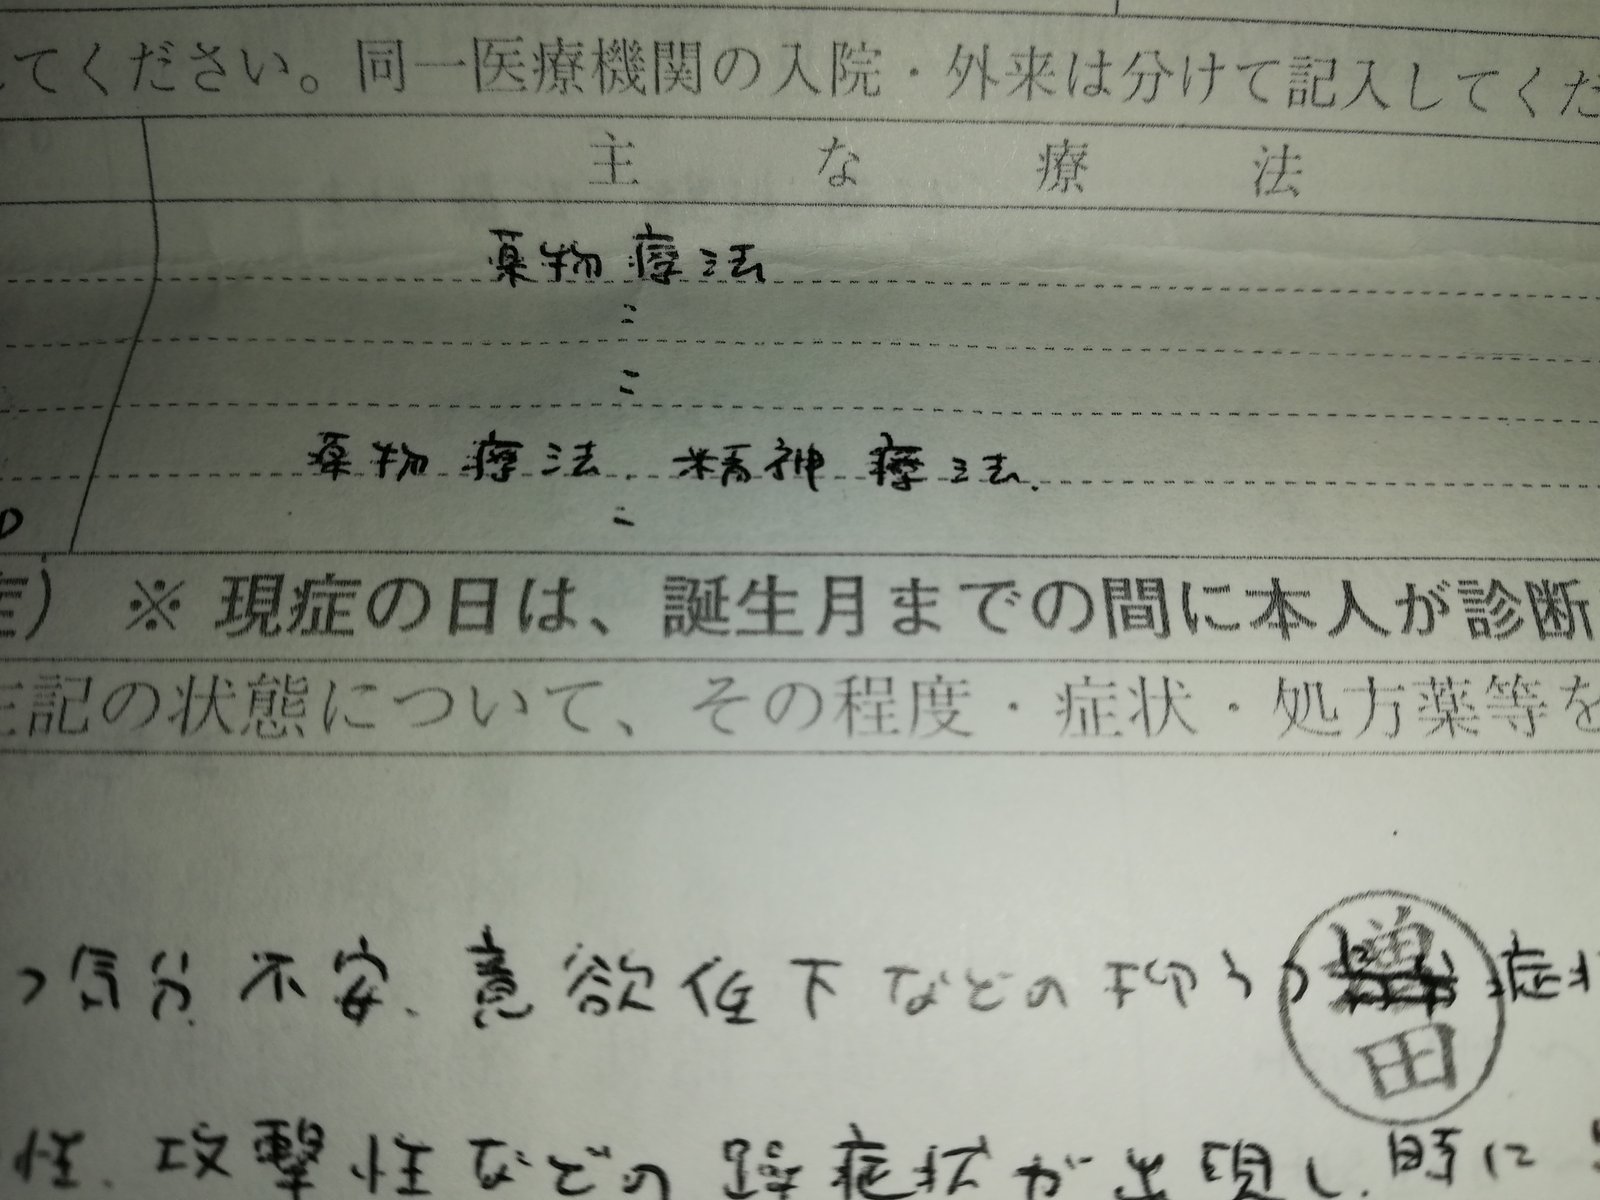 てください。同一医療機関の入院・外来は分けて記入してくだ
主な療法
薬物療法
〃
〃
薬物療法、精神療法.
〃
症) ※ 現症の日は、誕生月までの間に本人が診断
左記の状態について、その程度・症状・処方薬等を
つ気分 不安、意欲低下などの抑うつ 症状
増田
性、攻撃性などの躁症状が出現し、時に